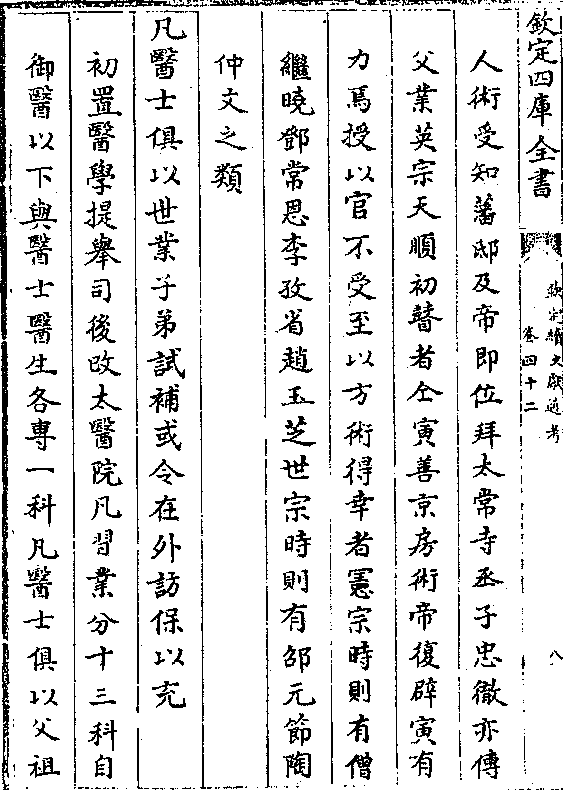 欽定四庫全書
欽定續文獻通考
卷四十二
八
人術受知藩邸及帝即位拜太常寺丞子忠徹亦傳
父業英宗天順初瞽者仝寅善京房術帝復辟寅有
力焉授以官不受至以方術得幸者憲宗時則有僧
繼曉鄧常恩李孜省趙玉芝世宗時則有邵元節陶
仲文之類
凡醫士俱以世業子弟試補或令在外訪保以充
初置醫學提舉司後改太醫院凡習業分十三科自
御醫以下與醫士醫生各專一科凡醫士俱以父祖